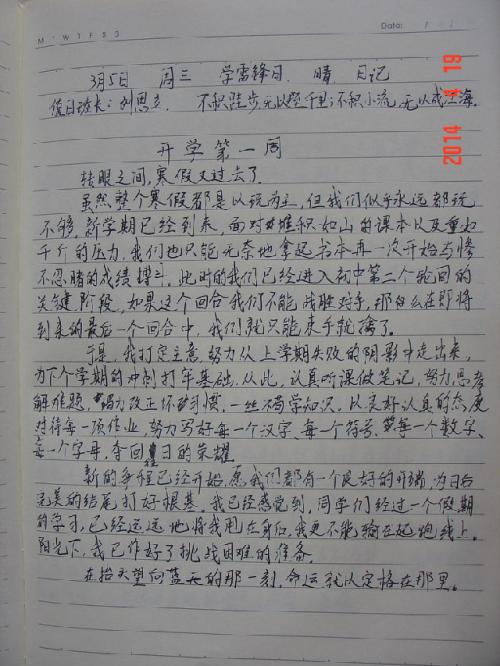 M T W T F S S
Date:
3月5日 周三 学雷锋日 晴 日记
值日班长：刘思 不积跬步无以至千里；不积小流，无以成江海。
开学第一周
转眼之间，寒假又过去了。
虽然整个寒假都是以玩为主，但我们似乎永远都玩
不够。新学期已经到来，面对堆积如山的课本以及重如
千斤的压力，我们也只能无奈地拿起书本再一次开始与惨
不忍睹的成绩搏斗。此时的我们已经进入初中第二个轮回的
关键阶段，如果这个回合我们不能战胜对手，那么在即将
到来的最后一个回合中，我们就只能束手就擒了。
于是，我打定主意，努力从上学期失败的阴影中走出来，
为下个学期的冲刺打牢基础。从此，认真听课做笔记，努力思考
解难题，努力改正坏习惯，一丝不苟学知识。以良好认真的态度
对待每一项作业，努力写好每一个汉字、每一个符号、每一个数字、
每一个字母，夺回往日的荣耀。
新的争程已经开始，愿我们都有一个良好的开端，为日后
完美的结尾打好根基。我已经感觉到，同学们经过一个假期
的学习，已经远远地将我甩在身后，我更不能输在起跑线上。
阳光下，我已作好了挑战困难的准备。
在抬头望向蓝天的那一刻，命运就以定格在那里。
2014 4 19